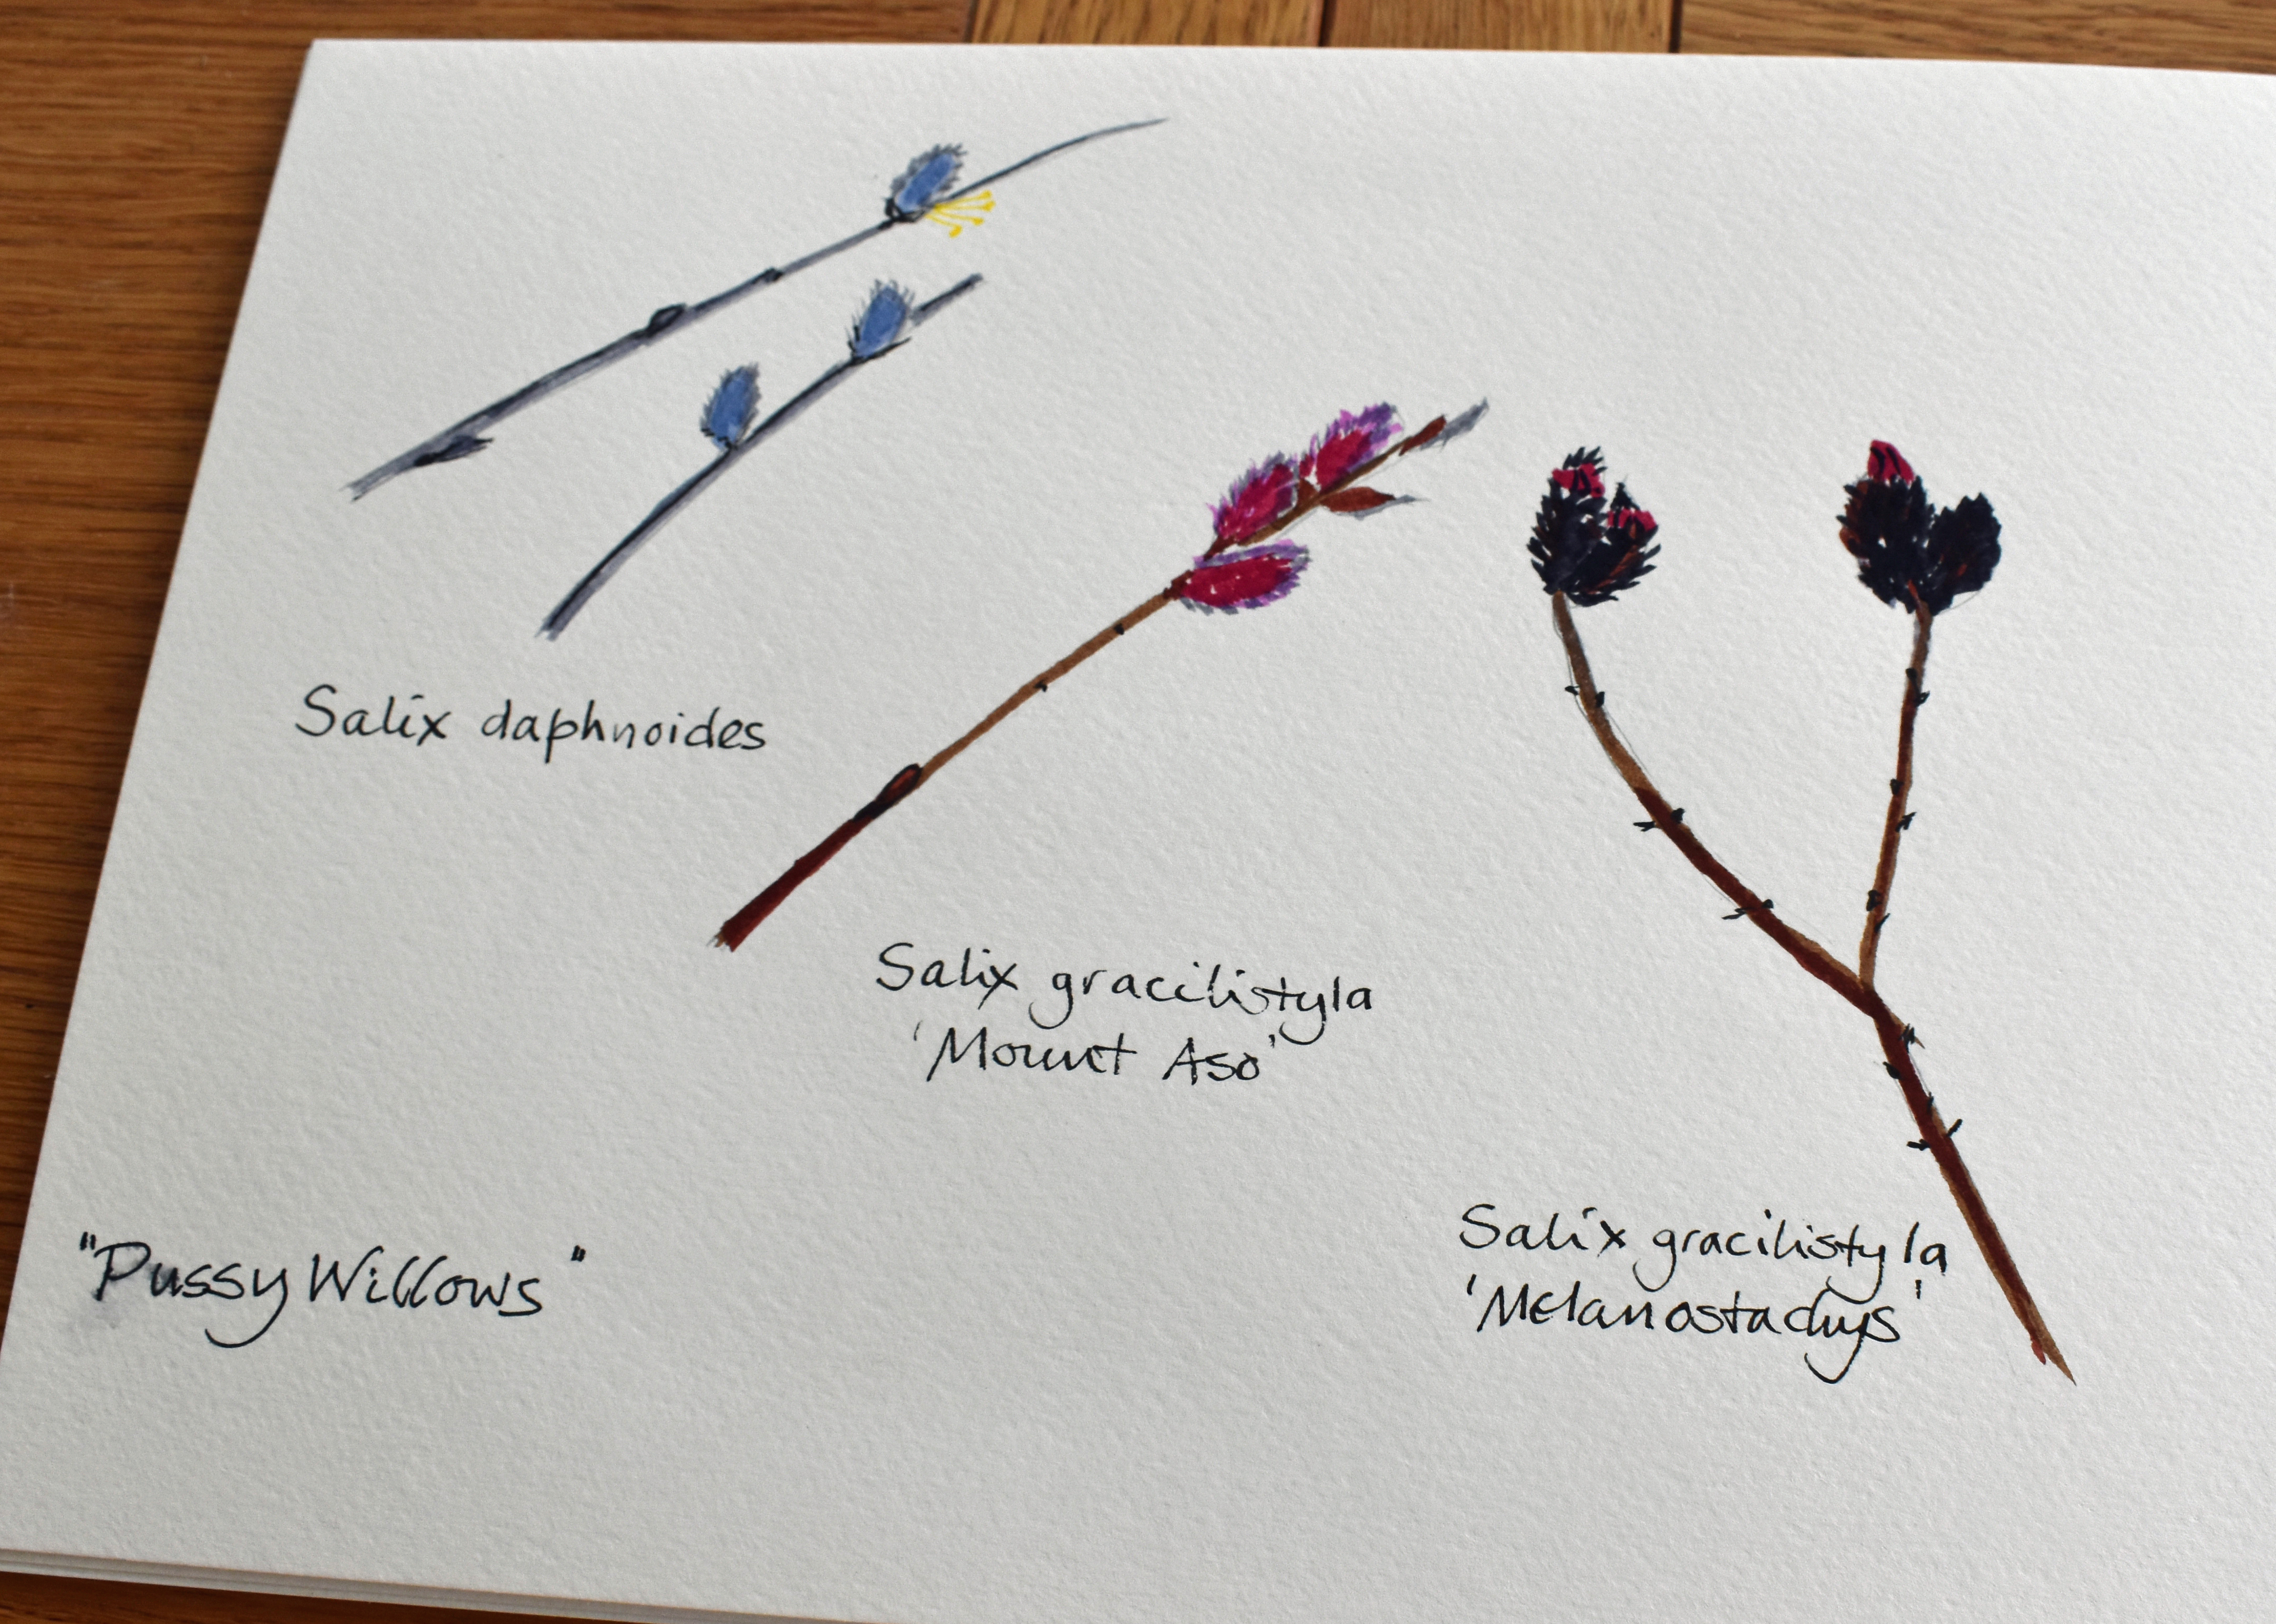 Salix daphnoides
Salix gracilistyla
'Mount Aso'
Salix gracilistyla
'Melanostachys'
"Pussy Willows"